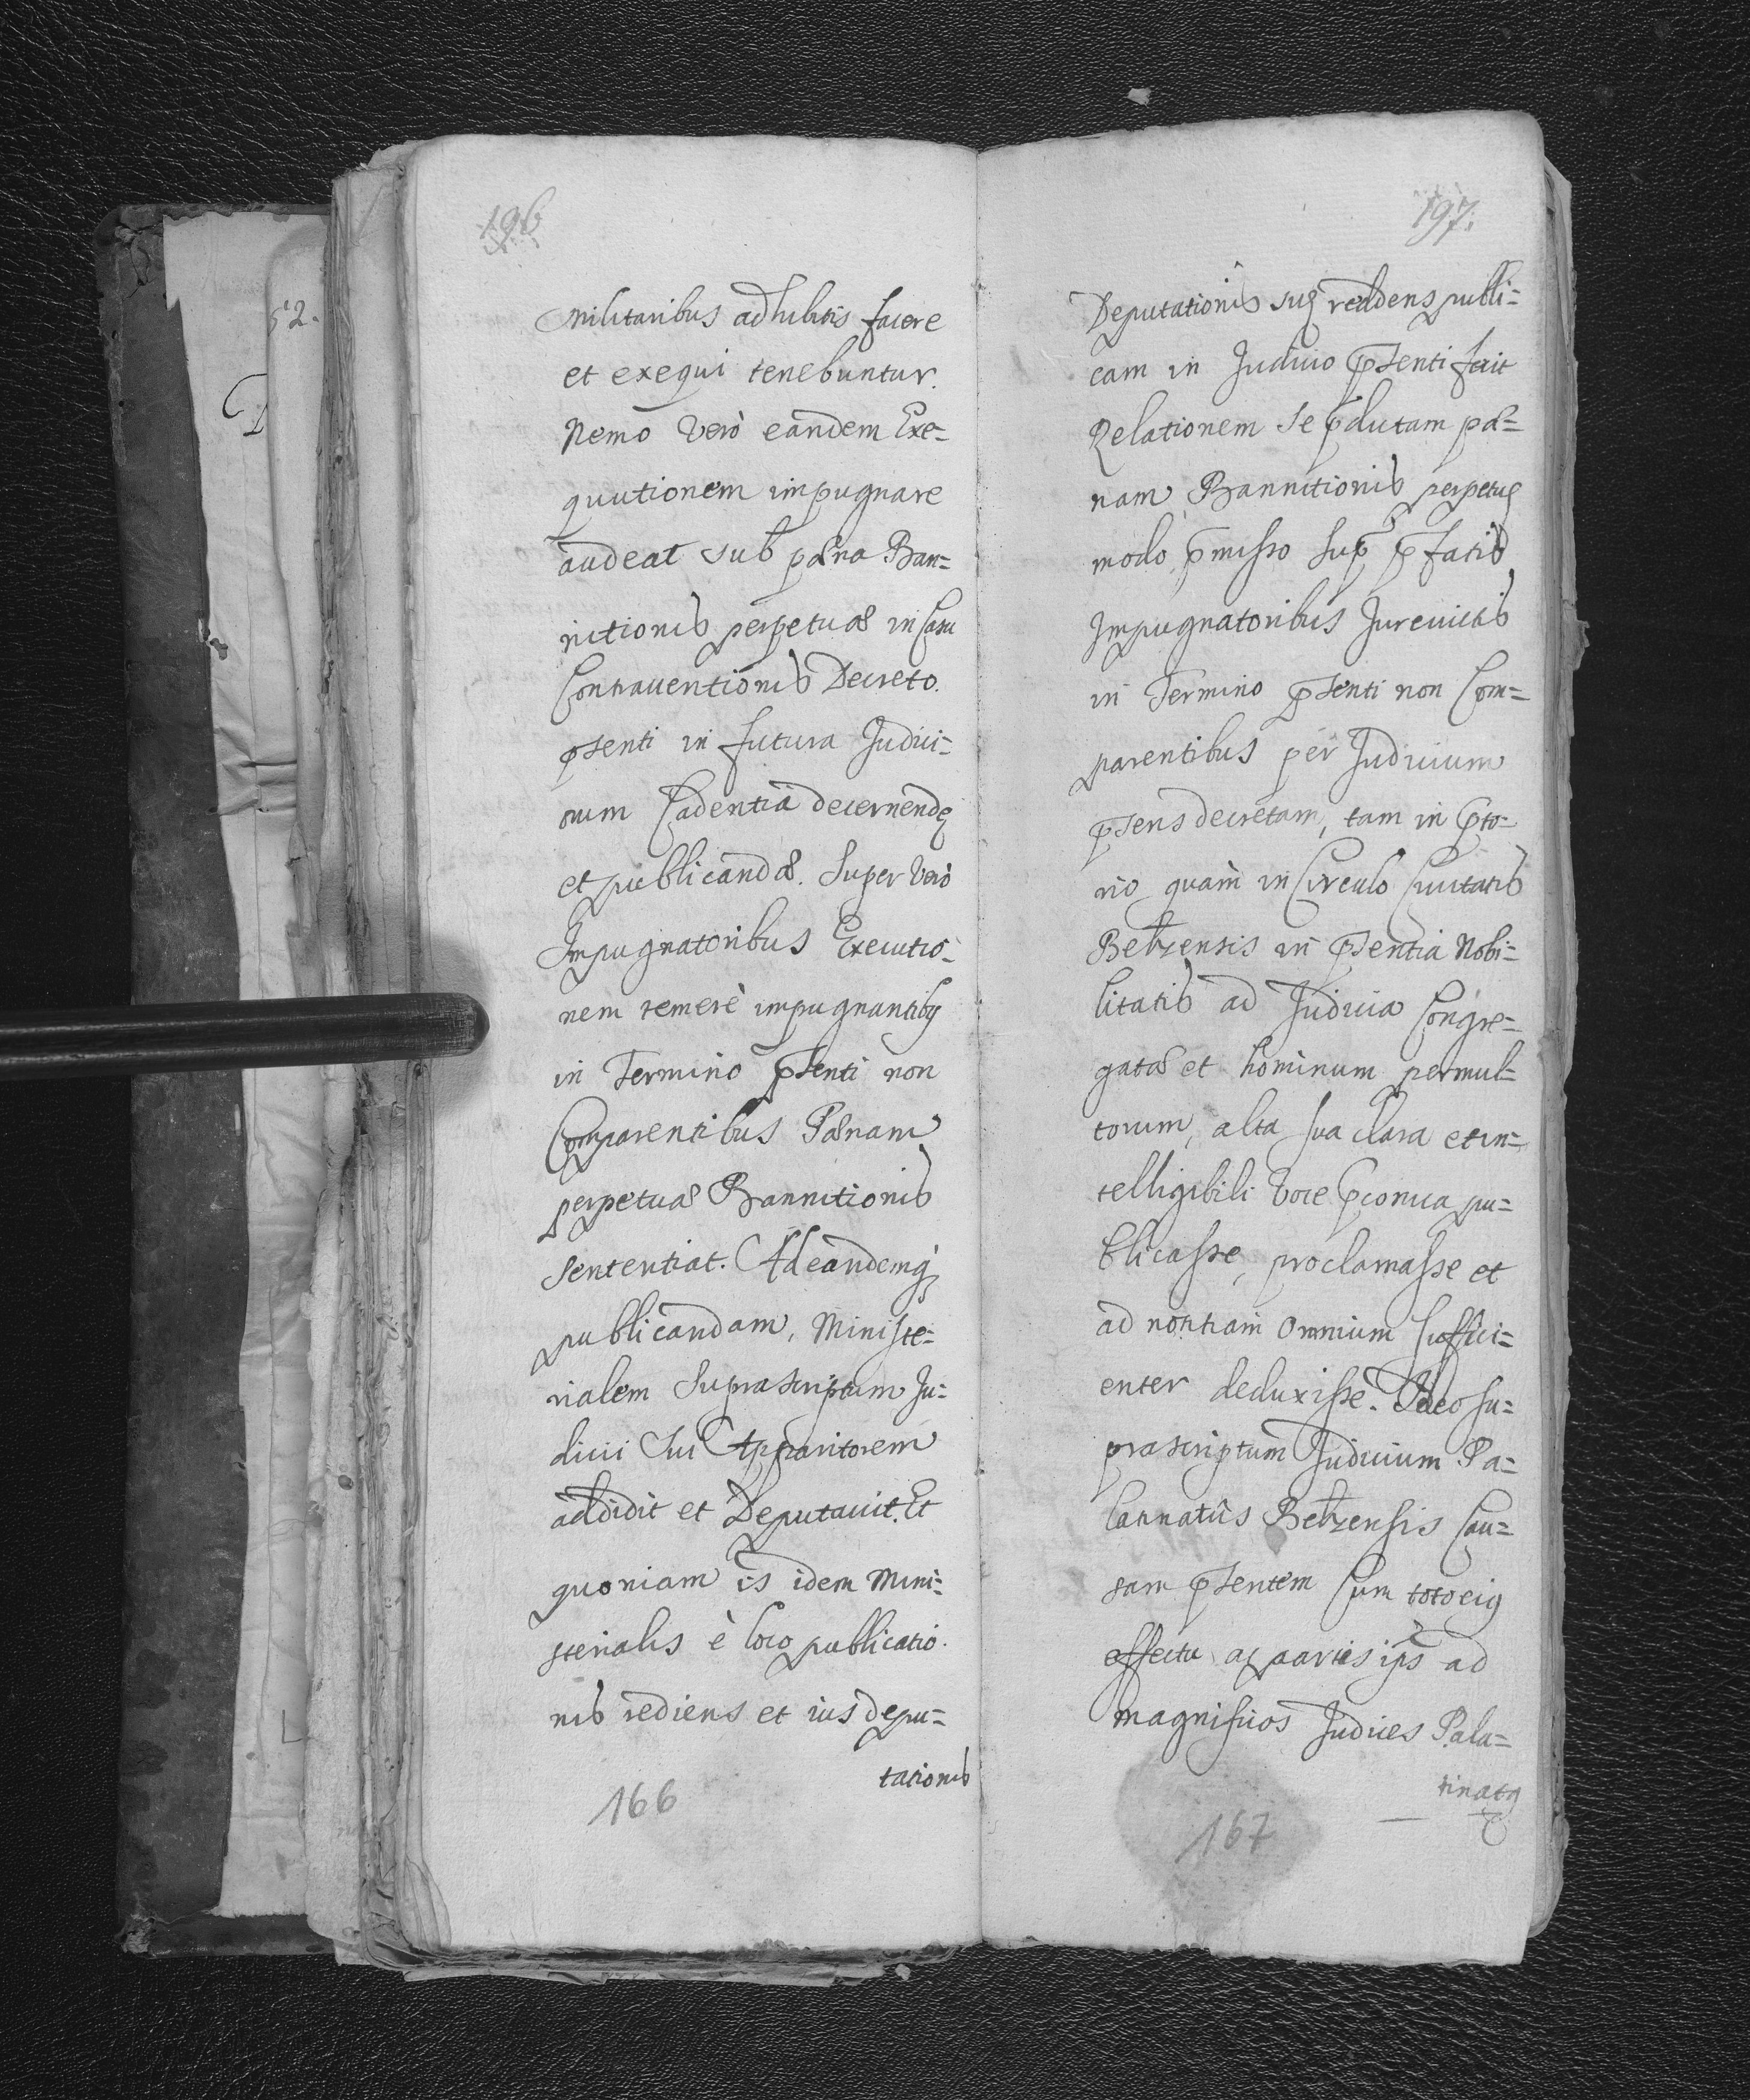 196
Militaribus adhibitis facere
et exequi tenebuntur.
Nemo Verò eandem Exe=
quutionem impugnare
audeat sub pæna Ban=
nitionis perpetuæ in Casu
Contraventionis Decreto
pñsenti in futura Judici=
orum Cadentia decernendę
et publicandæ. Super Verò
Impugnatoribus Executio=
nem temerè impugnantibꝰ
in Termino pñsenti non
Comparentibus Pænam
perpetuæ Bannitionis
sententiat. Ad eandemqꝫ
publicandam, Ministe=
rialem Suprascriptum Ju=
dicii Sui Apparitorem
addidit et Deputavit. Et
quoniam is idem Mini=
sterialis è loco publicatio
nis rediens et ius depu=
tationis
166
52.
197.
Deputationis suę reddens publi=
cam in Judicio pñsenti fecit
Relationem se p̄dictam pæ=
nam Bannitionis perpetuę
modo p̄misso sup p̄fatis
Impugnatoribus Jurevictis
in Termino pñsenti non Com=
parentibus per Judicium
pñsens decretam, tam in Pto=
rio quam in Circulo Civitatis
Belzensis in pñsentia Nobi=
litatis ad Judicia Congre=
gatæ et hominum permul=
torum, alta sua clara et in=
telligibili Voce p̄conica pu=
blicasse, proclamasse et
ad notitiam omnium suffici=
enter deduxisse. Ideo su=
prascriptum Judicium Pa=
latinatûs Belzensis Cau=
sam pñsentem Cum toto eiꝰ
effectu ac partes ip̄s ad
magnificos Judices Pala=
tinatꝰ
167